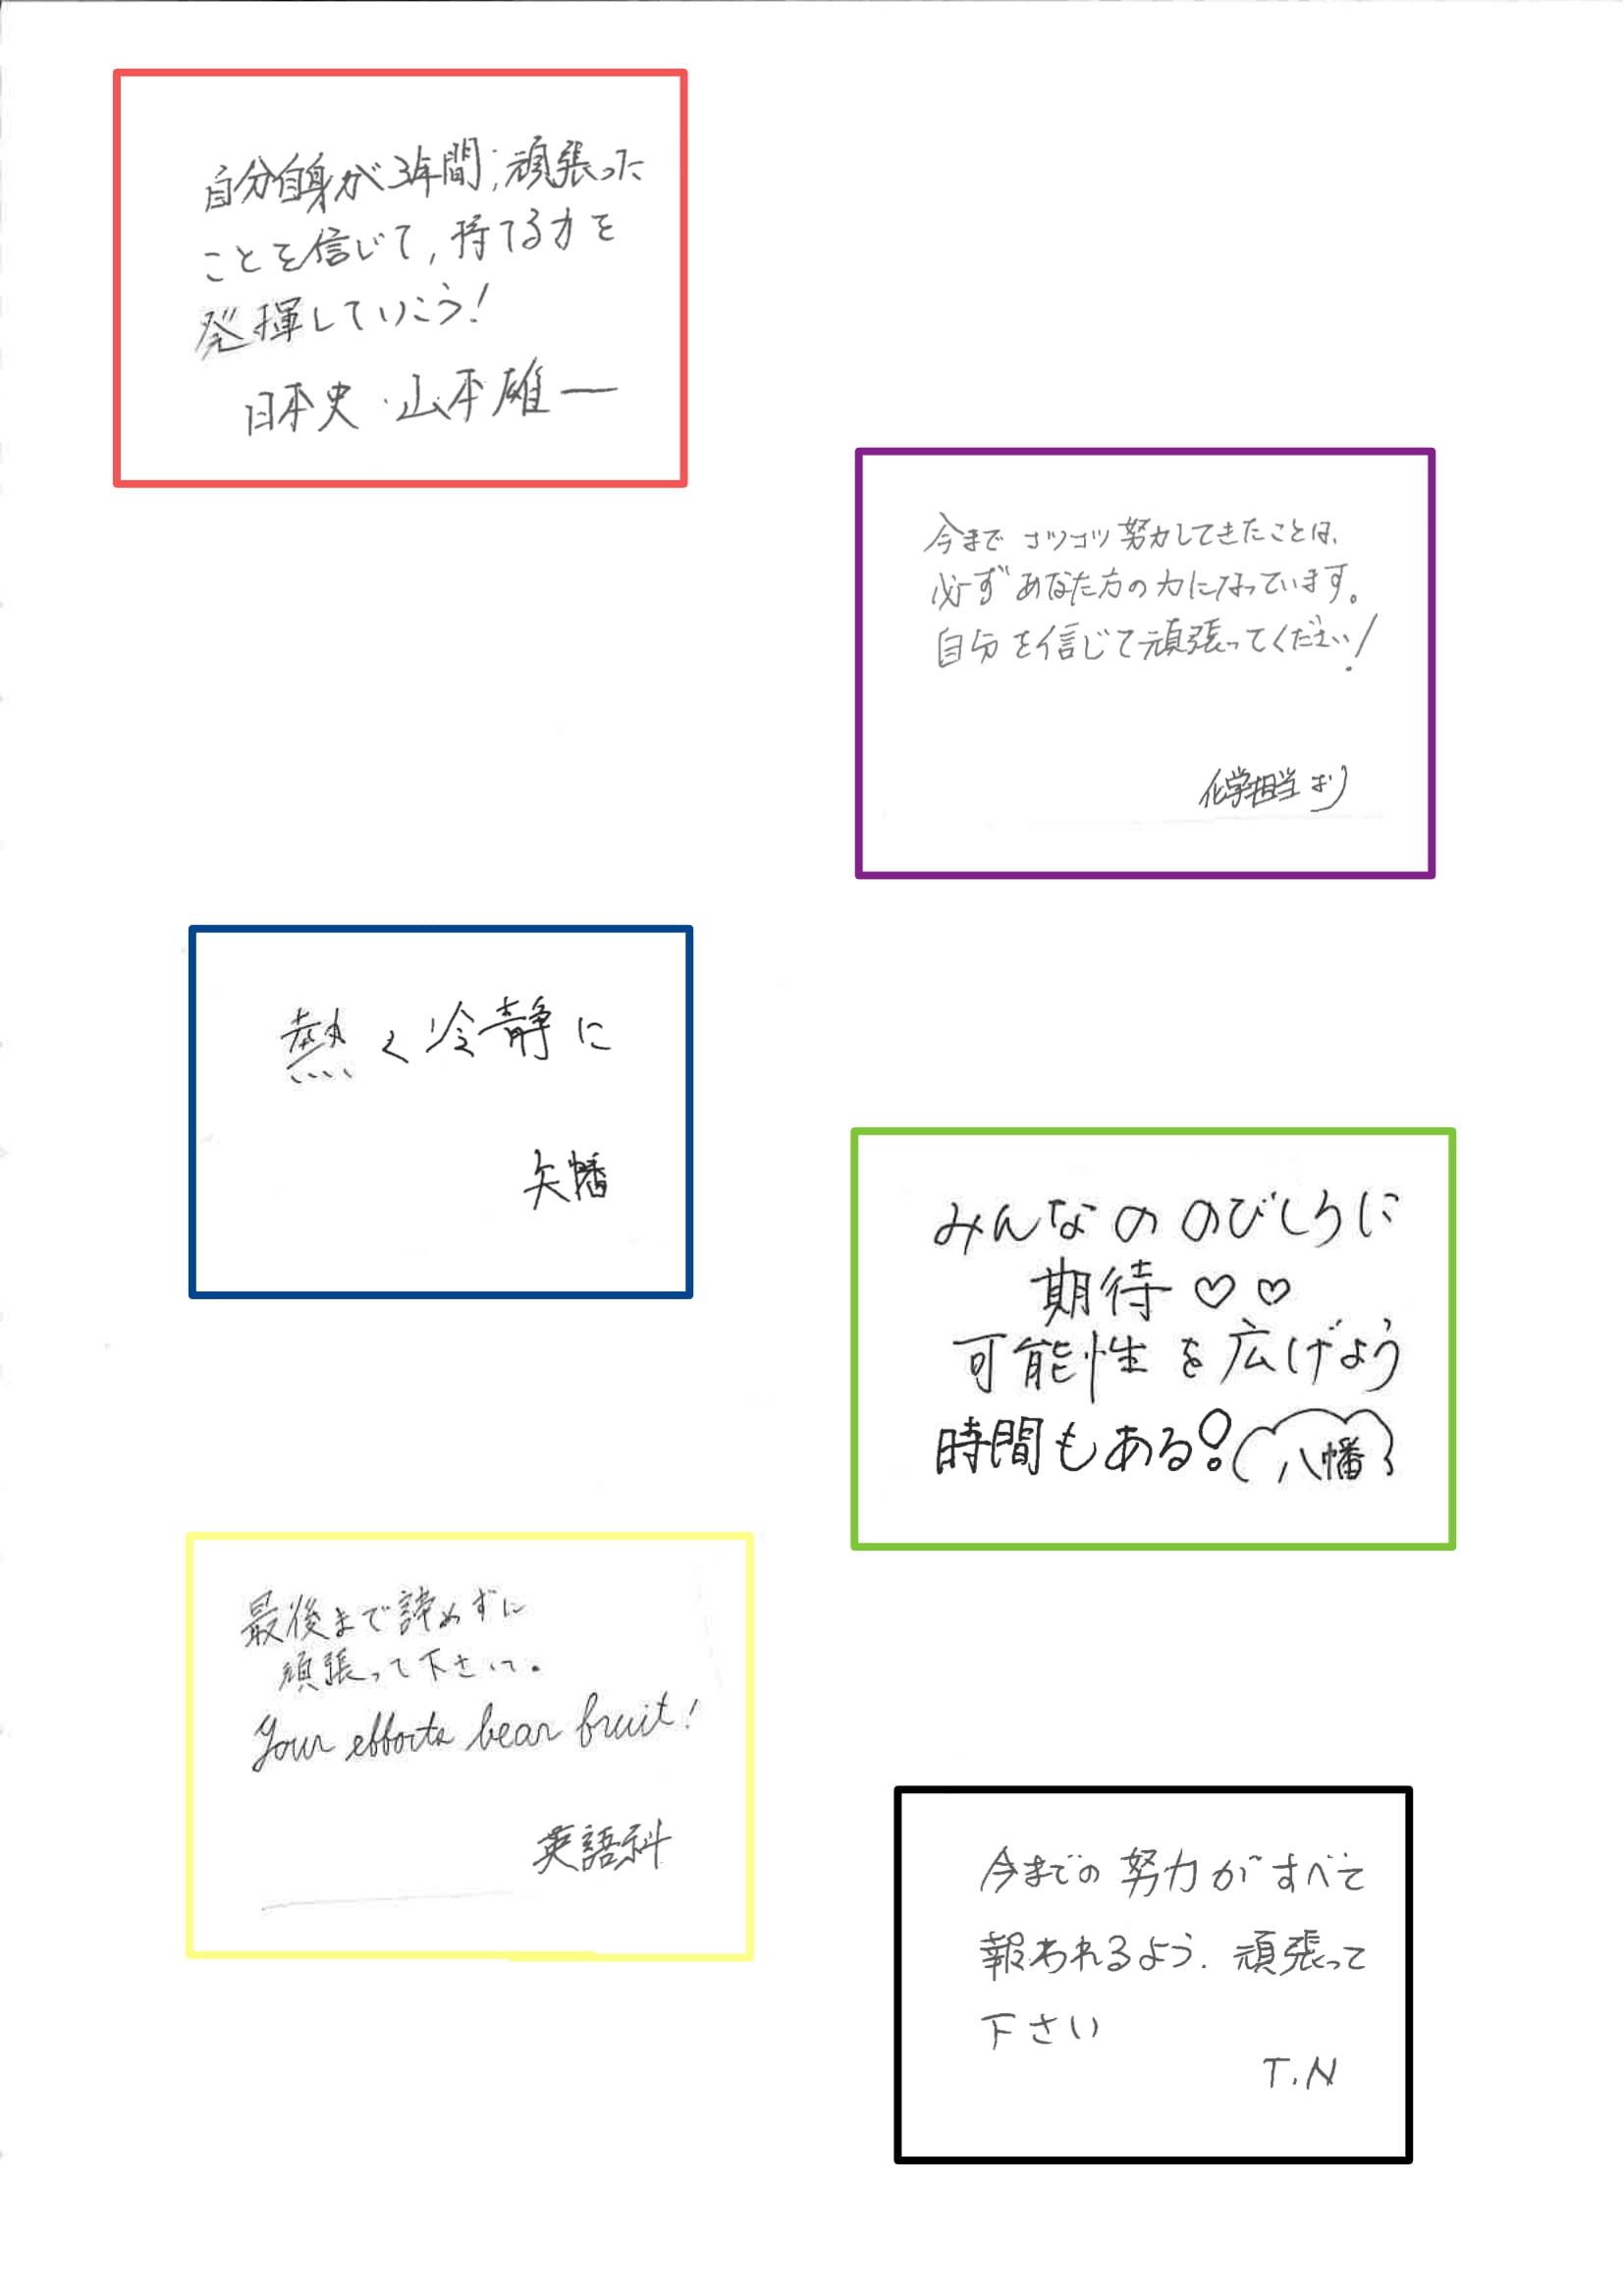 自分自身が3年間、頑張った
ことを信じて,持てる力を
発揮していこう!
日本史・山本雄一
今まで コツコツ努力してきたことは、
必ずあなた方の力になっています。
自分を信じて頑張ってください!
化学担当より
熱く冷静に
矢幡
みんなののびしろに
期待♡♡
可能性を広げよう
時間もある!八幡
最後まで諦めずに
頑張って下さいて。
Your efforts bear fruit!
英語科
今までの努力がすべて
報われるよう.頑張って
下さい
T.N